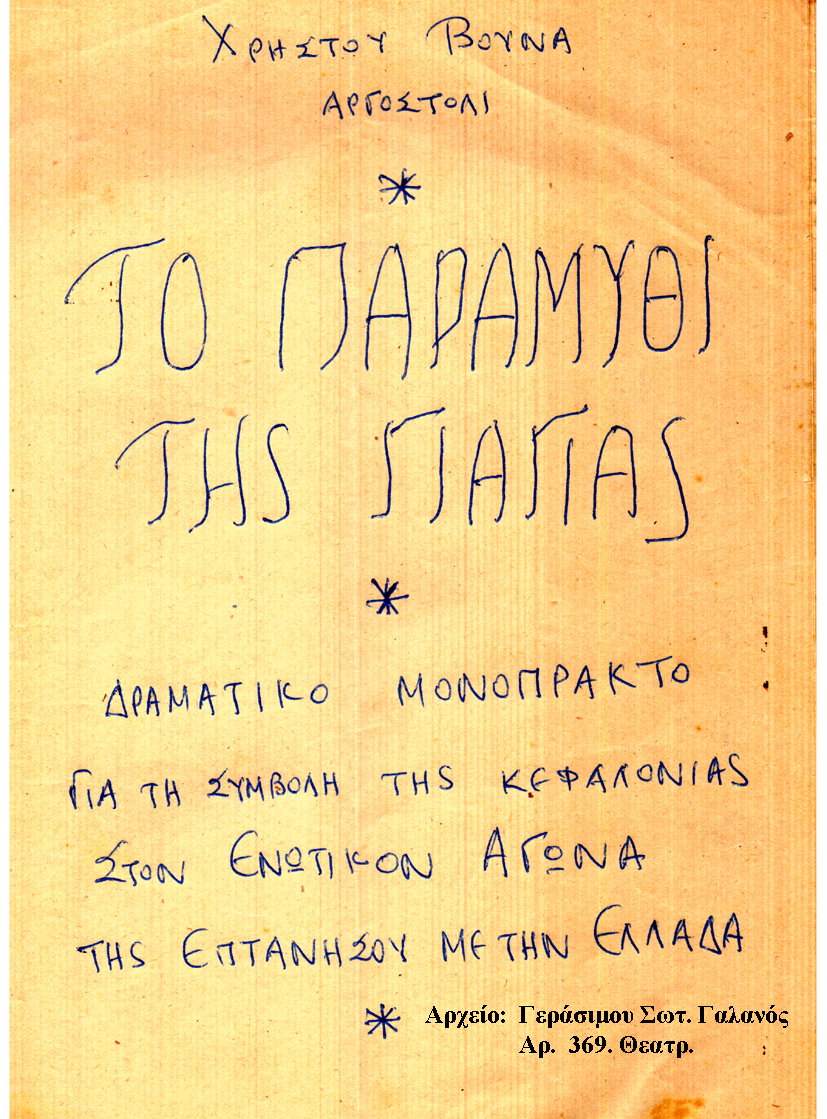 ΧΡΗΣΤΟΥ ΒΟΥΝΑ
ΑΡΓΟΣΤΟΛΙ
*
ΤΟ ΠΑΡΑΜΥΘΙ
ΤΗΣ ΓΙΑΓΙΑΣ
*
ΔΡΑΜΑΤΙΚΟ ΜΟΝΟΠΡΑΚΤΟ
ΓΙΑ ΤΗ ΣΥΜΒΟΛΗ ΤΗΣ ΚΕΦΑΛΟΝΙΑΣ
ΣΤΟΝ ΕΝΩΤΙΚΟΝ ΑΓΩΝΑ
ΤΗΣ ΕΠΤΑΝΗΣΟΥ ΜΕ ΤΗΝ ΕΛΛΑΔΑ
*
Αρχείο: Γεράσιμου Σωτ. Γαλανός
Αρ. 369. Θεατρ.